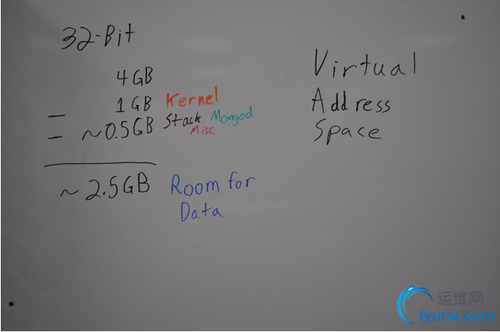 32-Bit
4GB
- 1GB Kernel
- ~0.5GB Stack Mongod
Misc
~2.5GB Room for
Data
Virtual
Address
Space
运维网
iyunv.com